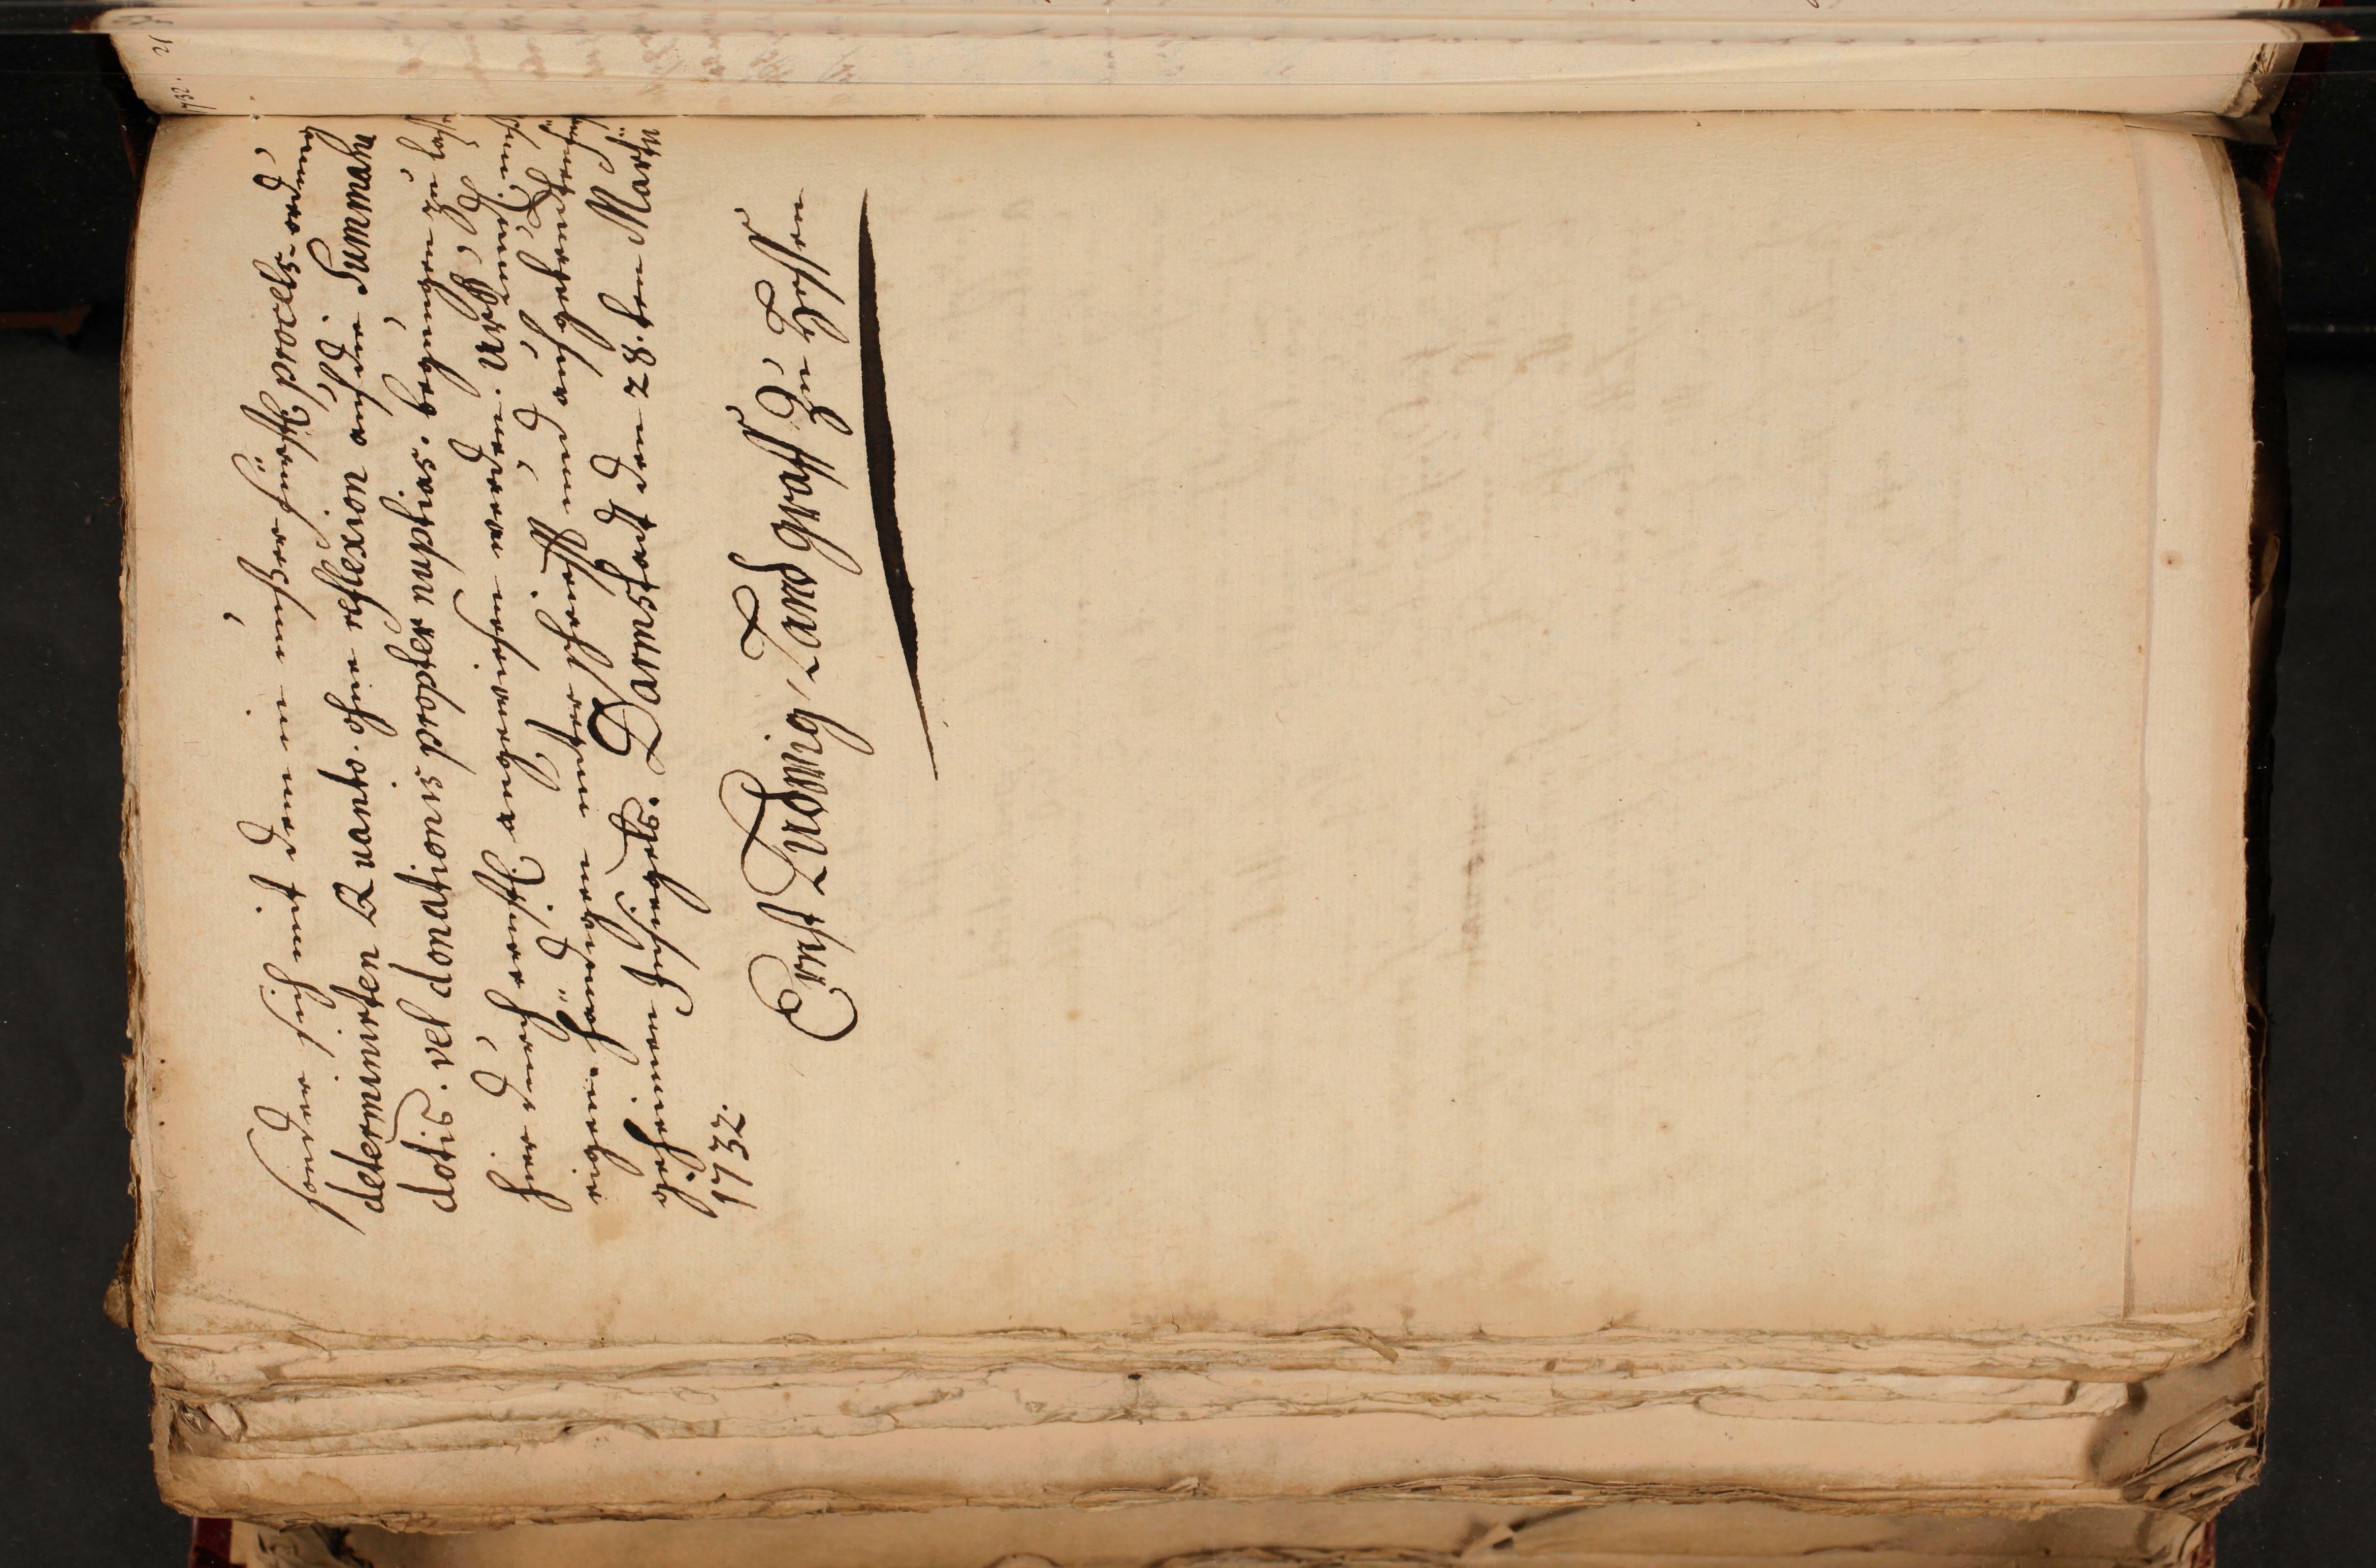 sondern sich mit dem in unserer fürstl: process-ordnung
determinirten Quanto. ohne reflexion auf die Summam
dotis. vel donationis propter nuptias. begnügen zu laßen
hierdurch ernstlich angewiesen werden. Uhrkundlich
eigenhändigen unterschrifft und hierauf gedruckten
geheimen Insiegels. Darmstadt den 28.ten Martii
1732.
Ernst Ludwig, Landgraff Zu Heßen
1732.